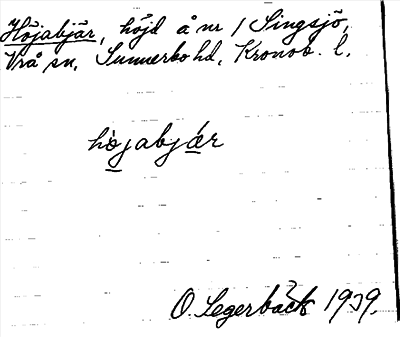 Höjabjär, höjd å nr 1 Singsjö,
Vrå sn, Sunnerbo hd, Kronob. l.
höjabjär
O. Segerbäck 1939.